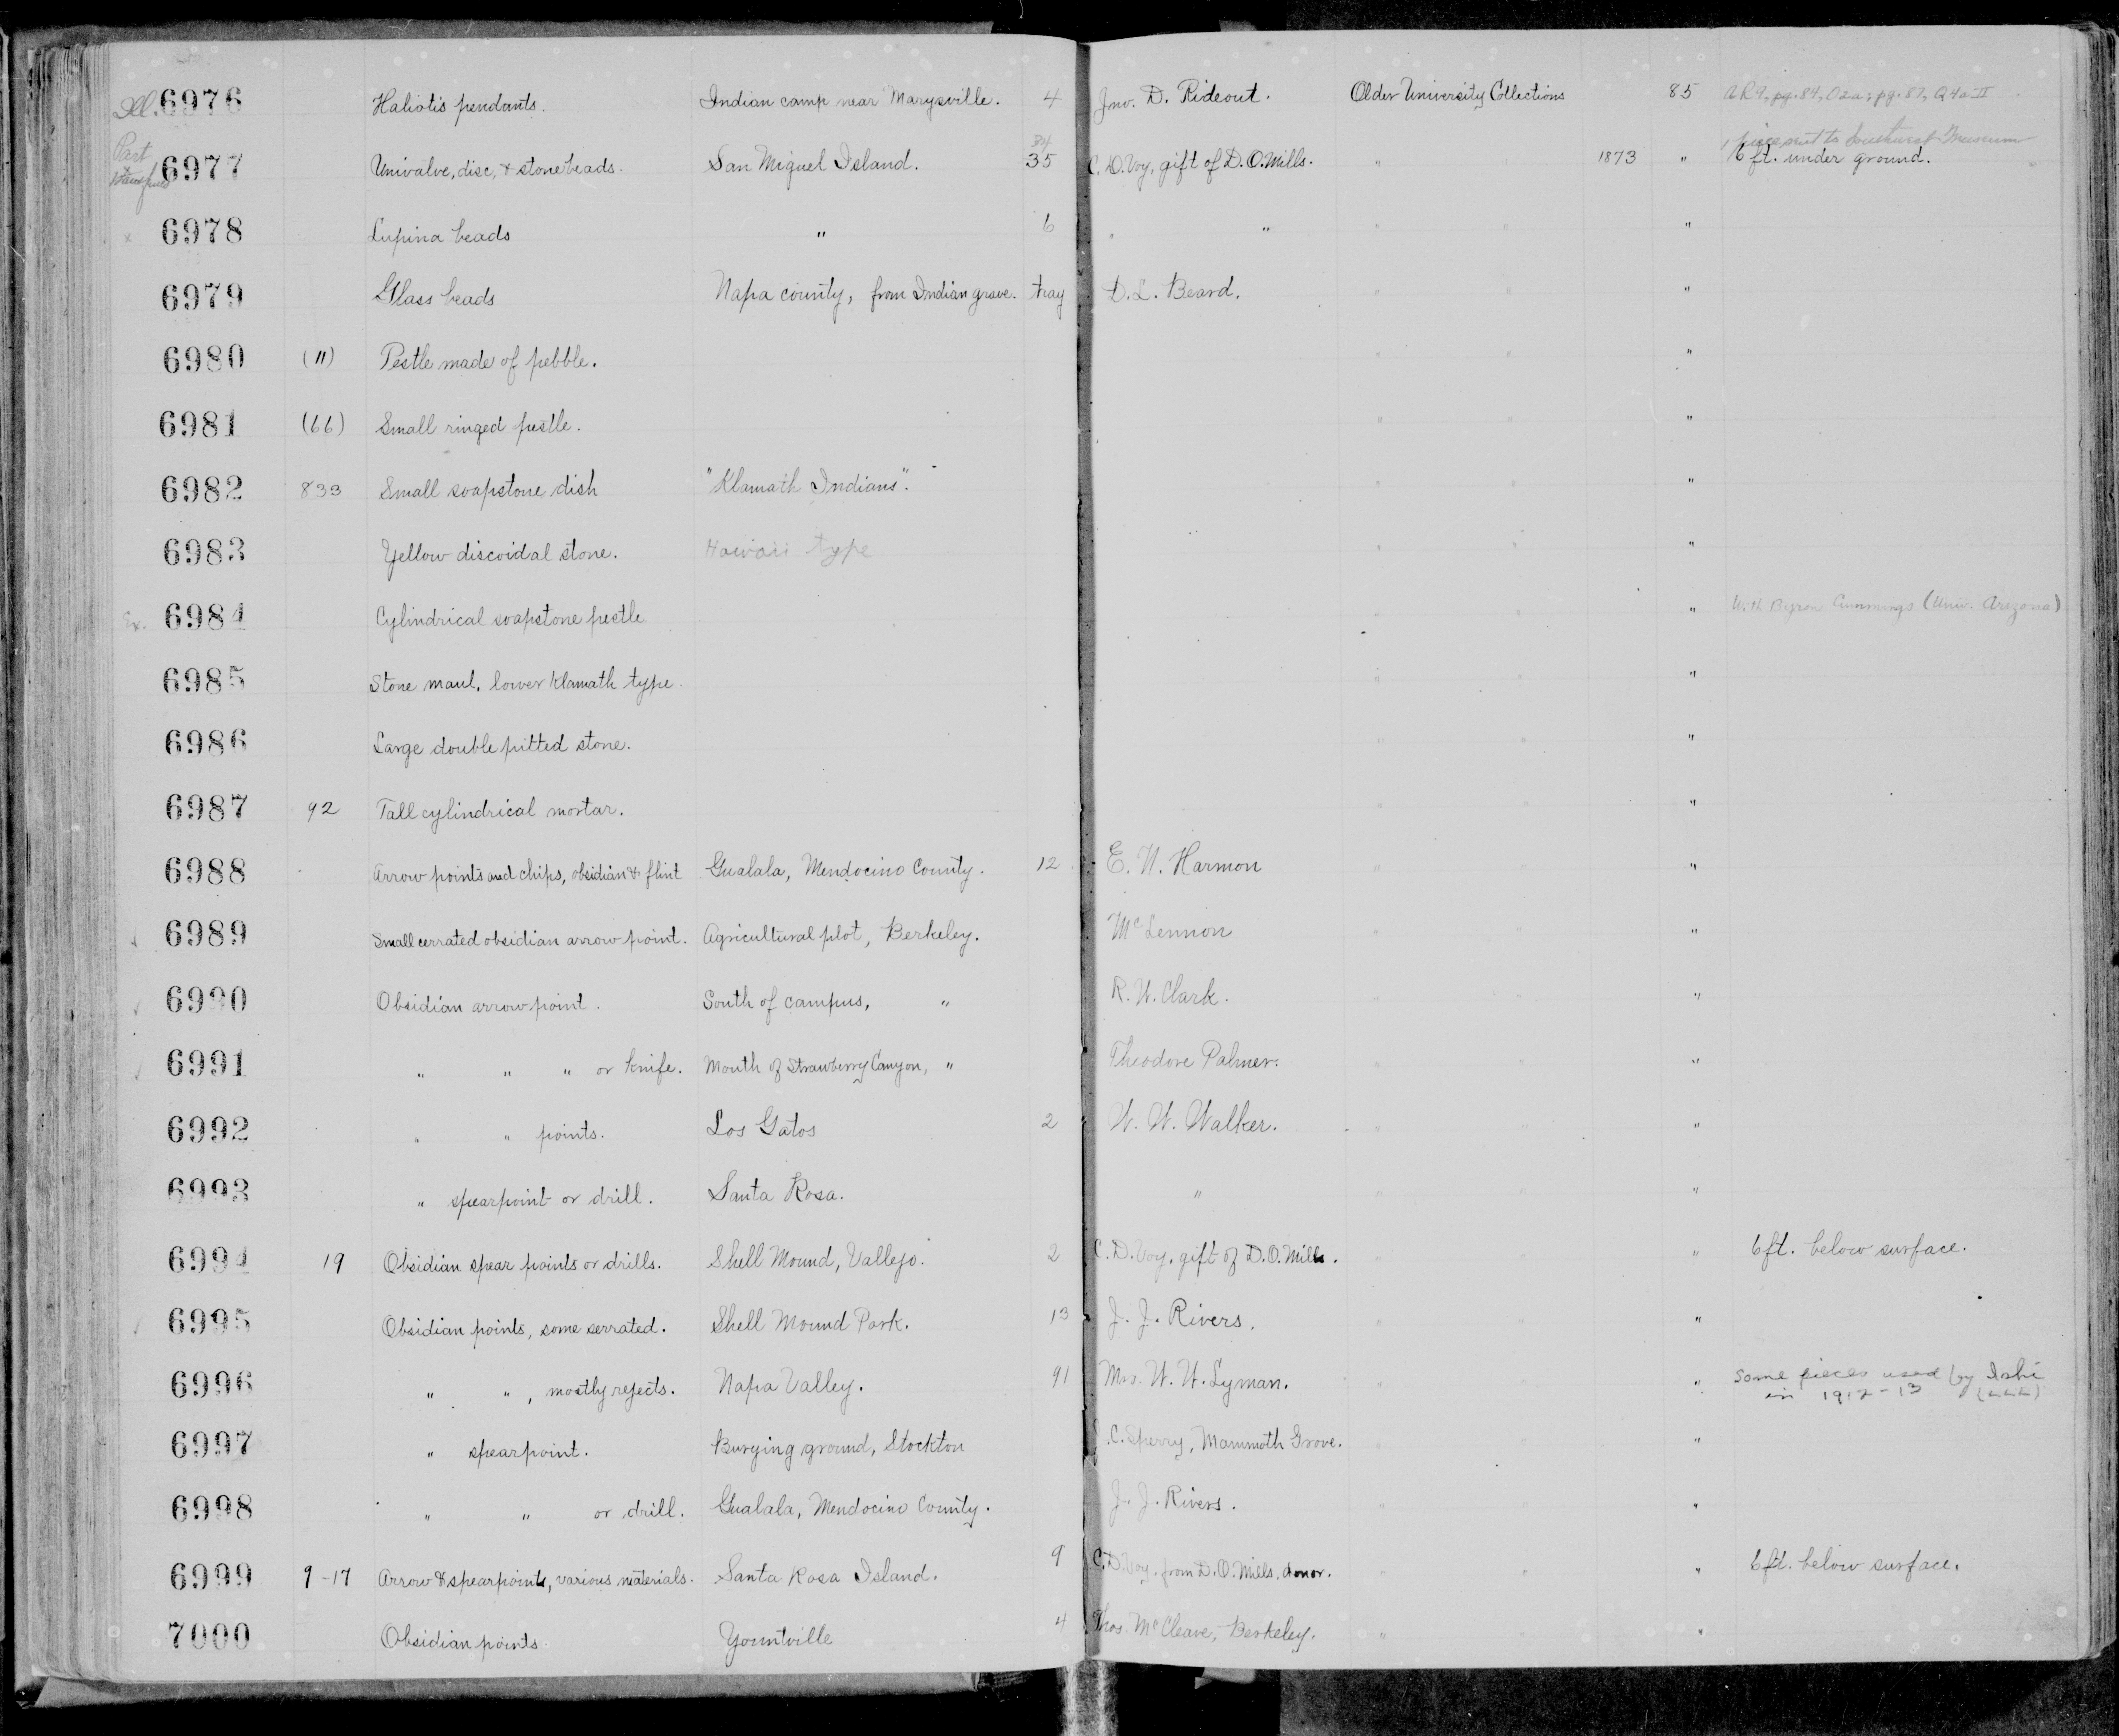 Ill. 6976 Haliotis pendants. Indian camp near Marysville. 4 Jno. D. Rideout. Older University Collections 85 AR9, pg. 84, O2a; pg. 87, Q4a II
Part 34 1 piece sent to Museum
6977 Univalve, disc, & stone beads. San Miguel Island. 35 C. D. Voy, gift of D. O. Mills. " 1873 " 6 ft. under ground.
x 6978 Lupina beads " 6 " " " " "
6979 Glass beads Napa county, from Indian grave. tray D. L. Beard. " " "
6980 (11) Pestle made of pebble. " " "
6981 (66) Small ringed pestle. " " "
6982 833 Small soapstone dish "Klamath Indians". " " "
6983 Yellow discoidal stone. Hawaii type " " "
Ex. 6984 Cylindrical soapstone pestle. " " " With Byron Cummings (Univ. Arizona)
6985 Stone maul, lower Klamath type. " " "
6986 Large double pitted stone. " " "
6987 92 Tall cylindrical mortar. " " "
6988 Arrow points and chips, obsidian & flint Gualala, Mendocino County. 12 E. W. Harmon " " "
✓ 6989 Small cerrated obsidian arrow point. Agricultural plot, Berkeley. McLennon " " "
✓ 6990 Obsidian arrow point. South of campus, " R. W. Clark. " " "
✓ 6991 " " " or knife. Mouth of Strawberry Canyon, " Theodore Palmer. " " "
6992 " " points. Los Gatos 2 W. W. Walker. " " "
6993 " spearpoint or drill. Santa Rosa. " " " "
6994 19 Obsidian spear points or drills. Shell Mound, Vallejo. 2 C. D. Voy, gift of D. O. Mills. " " " 6 ft. below surface.
✓ 6995 Obsidian points, some serrated. Shell Mound Park. 13 J. J. Rivers. " " "
6996 " " , mostly rejects. Napa Valley. 91 Mrs. W. W. Lyman. " " " Some pieces used by Ishi
in 1912-13 (LLL)
6997 " spearpoint. Burying ground, Stockton C. Sperry, Mammoth Grove. " " "
6998 " " or drill. Gualala, Mendocino County. J. J. Rivers. " " "
6999 9-17 Arrow & spearpoints, various materials. Santa Rosa Island. 9 C. D. Voy, from D. O. Mills, donor. " " " 6 ft. below surface.
7000 Obsidian points. Yountville 4 Thos. McCleave, Berkeley. " " "